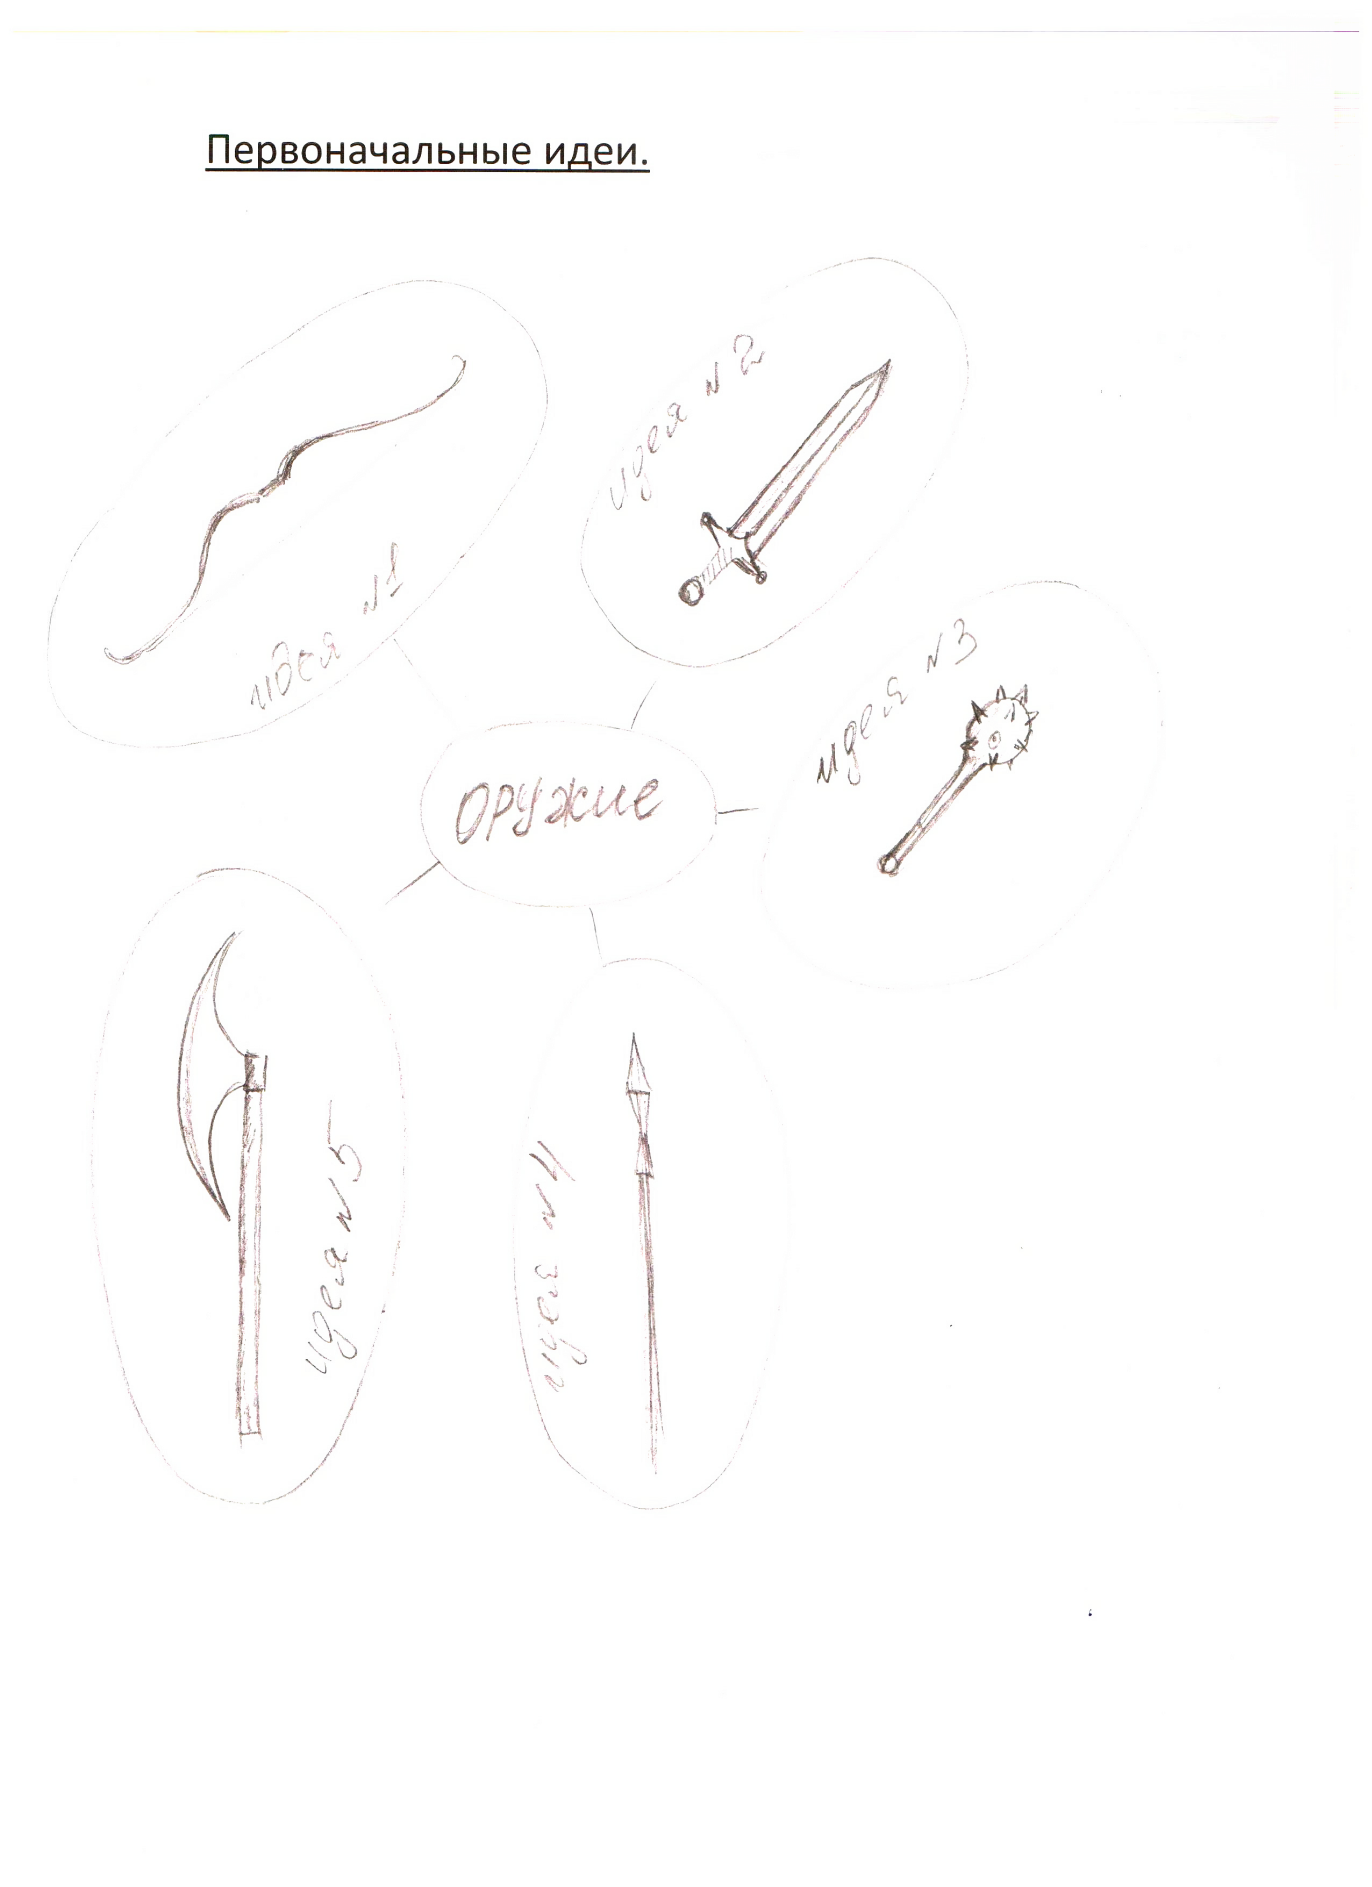 Первоначальные идеи.
идея №1
идея № 2
идея № 3
оружие
идея № 5
идея № 4